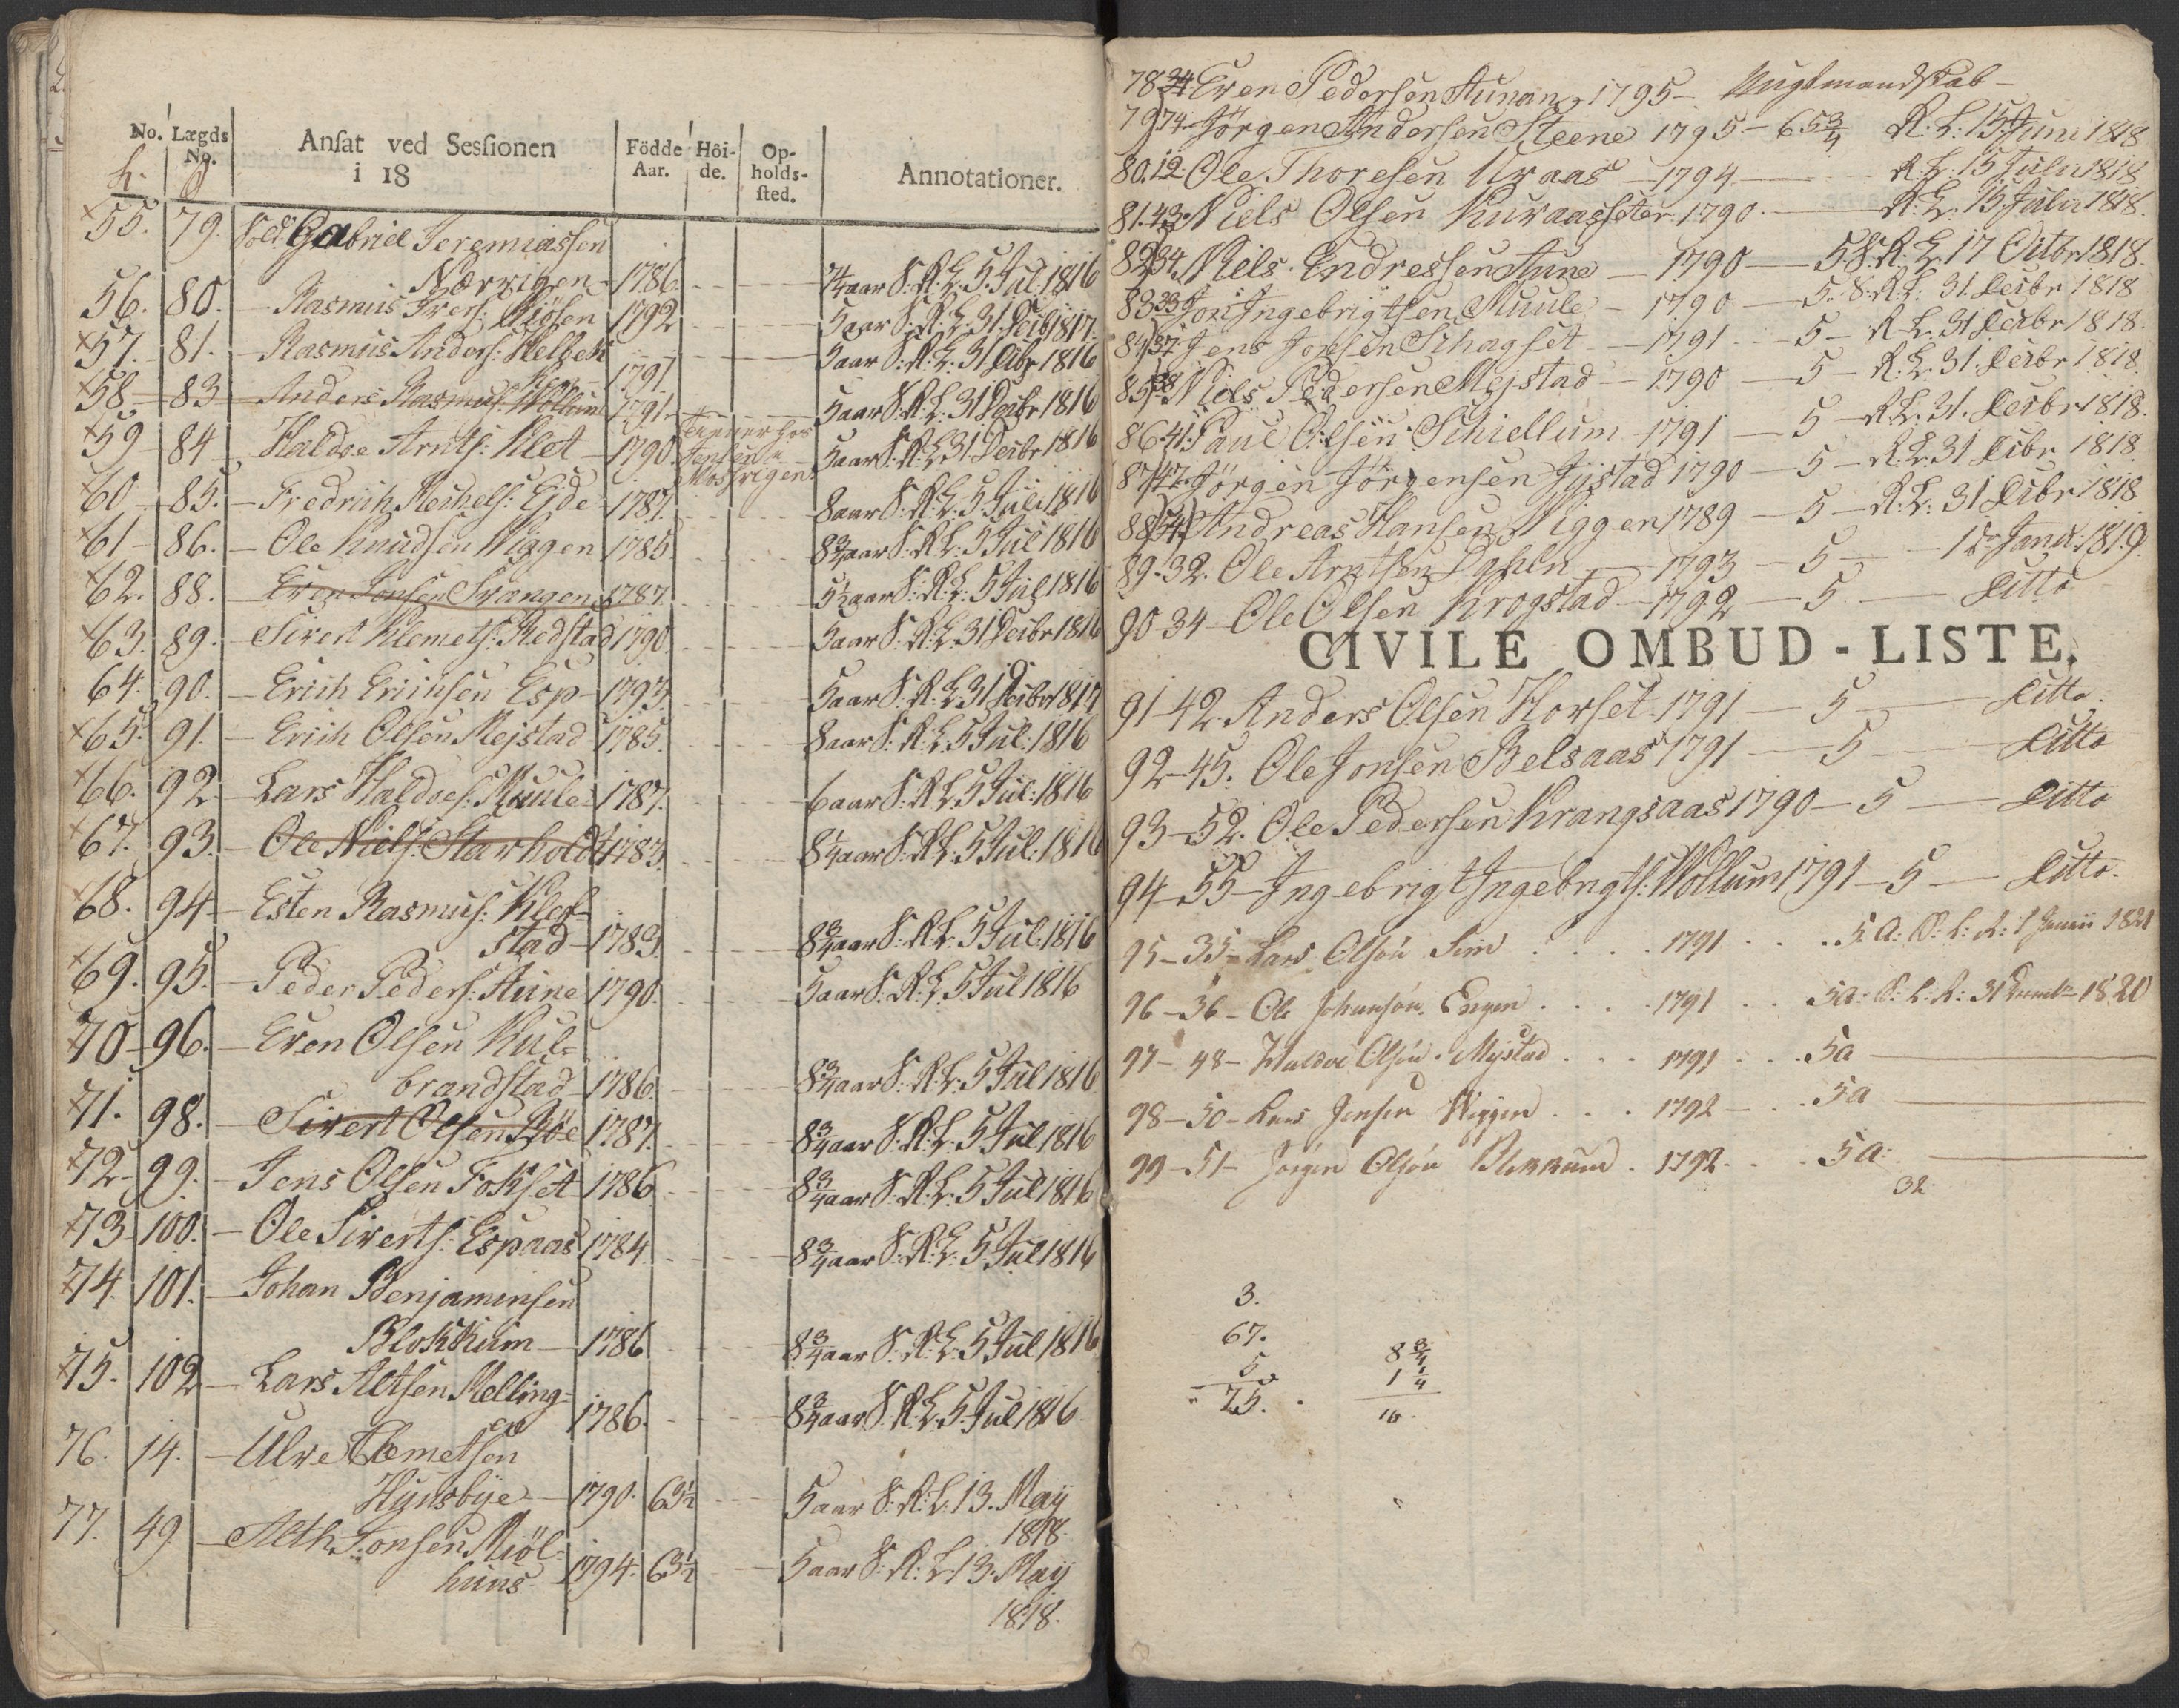 No. Lægds No. Ansat ved Sessionen i 18 Födde Aar. Höi-de. Op-holds-sted. Annotationer.
55. 79. Sold: Gabriel Jeremiassen
Nærvigen 1786 7/4 aar S: R: L: 5. Jul: 1816
56. 80. Rasmus Ivers: Miösen 1792 5 aar S: R: L: 31. Decbr 1817.
57. 81. Rasmus Anders: 1791 5 aar S: R: L: 31. Decbr 1816
58 83 Anders Rasmus: Wollum 1791 5 aar S: R: L: 31 Decbr 1816
59 84 Haldoe Arnts: Klet 1790 5 aar S: R: L: 31. Decbr 1816
60 85. Fredrich Michels: Eide 1787. 8 aar S: R: L: 5. Juli 1816
61 86. Ole Knudsen Wiggen 1785 8 3/4 aar S: R: L: 5 Jul 1816
62. 88. Even Jonsen Svangen 1787 5 1/2 aar S: R: L: 5 Jul 1816
63. 89. Sivert Klemets: Redstad 1790 5 aar S: R: L: 31 Decbr 1816
64. 90. Erich Erichsen Esp 1793 5 aar S: R: L: 31 Decbr 1817
65. 91. Erich Olsen Mejstad 1785. 8 aar S: R: L: 5 Jul: 1816
66. 92 Lars Haldoes: Muule 1787. 6 aar S: R: L: 5 Jul: 1816
67. 93. Ole Niels: Starholdt 1783 8 1/4 aar S: R: L: 5. Jul: 1816
68. 94 Esten Rasmus: Klef=
stad 1783 8 3/4 aar S: R: L: 5 Jul: 1816
69. 95. Peder Peders: Aune 1790. 5 aar S: R: L: 5 Jul 1816
70 96. Even Olsen Kul=
brandstad 1786. 8 3/4 aar S: R: L: 5 Jul 1816
71. 98. Sivert Olsen Böe 1787. 8 3/4 aar S: R: L: 5 Jul 1816
72. 99. Jens Olsen Fokset 1786 8 3/4 aar S: R: L: 5 Jul 1816
73 100. Ole Siverts: Espaas 1784 8 3/4 aar S: R: L: 5. Jul 1816
74. 101. Johan Benjaminsen
Blokkum 1786 8 3/4 aar S: R: L: 5 Jul 1816
75. 102 Lars Altsen Melling=
en 1786. 8 3/4 aar S: R: L: 5. Jul 1816
76. 14. Ulve Clemetsen
Hynsbye 1790. 63 1/2 5 aar S: R: L: 13. Maij
1818.
77. 49 Alth Jonsen Miöl=
huus 1794. 63 1/2 5 aar S: R: L: 13. Maij
1818.
78 34 Even Pedersen Aunan 1795
79 74 Jörgen Andersen Steene 1795 - 65 3/4 R: L: 15 Juni 1818
80. 12 Ole Thoresen Uraas 1794 R: L: 15 Juli 1818
81. 43 Niels Olsen Kuraassæter 1790. R: L: 15 Juli 1818.
82 34 Niels Endressen Aune 1790 5 S: R: L: 17 Octbr 1818.
83 33 Jon Ingebrigtsen Muule 1790 5. S: R: L: 31. Decbr 1818
84 37 Jens Jonsen Schagset 1791 5 R: L: 31 Decbr 1818.
85 38 Niels Pedersen Mejstad 1790 5 R: L: 31. Decbr 1818.
86 41 Paul Olsen Schiellum 1791 5 R: L: 31. Decbr 1818.
87 47 Jörgen Jörgensen Gystad 1790 5 R: L: 31 Decbr 1818.
88 54 Andreas Hansen Wiggen 1789 5 R: L: 31 Decbr 1818
89. 32. Ole Arntsen Dahlen 1793 5 1de Janr: 1819.
90 34 Ole Olsen Krogstad 1792 5 Ditto
CIVILE OMBUD-LISTE.
91 42 Anders Olsen Horset 1791 5 Ditto.
92 45. Ole Jonsen Belsaas 1791 5 Ditto
93 52. Ole Pedersen Krangsaas 1790 5 Ditto
94 55 Ingebrigt Ingebrigts: Wollum 1791 5 Ditto.
95 35 Lars Olsön 1791 5 A: S: L: R: 1 Januii 1821
96 36 Ole Johansön Engen 1791 5 a: S: L: R: 31 Decembr 1820
97 48 Haldoe Olsön Mystad 1791 5 a
98 50 Lars Jensen Wiggen 1792 5 a
99 51 Jörgen Olsön Blokkum 1792 5 a:
32
3.
67. 8 3/4
5 1 1/4
75. 10.